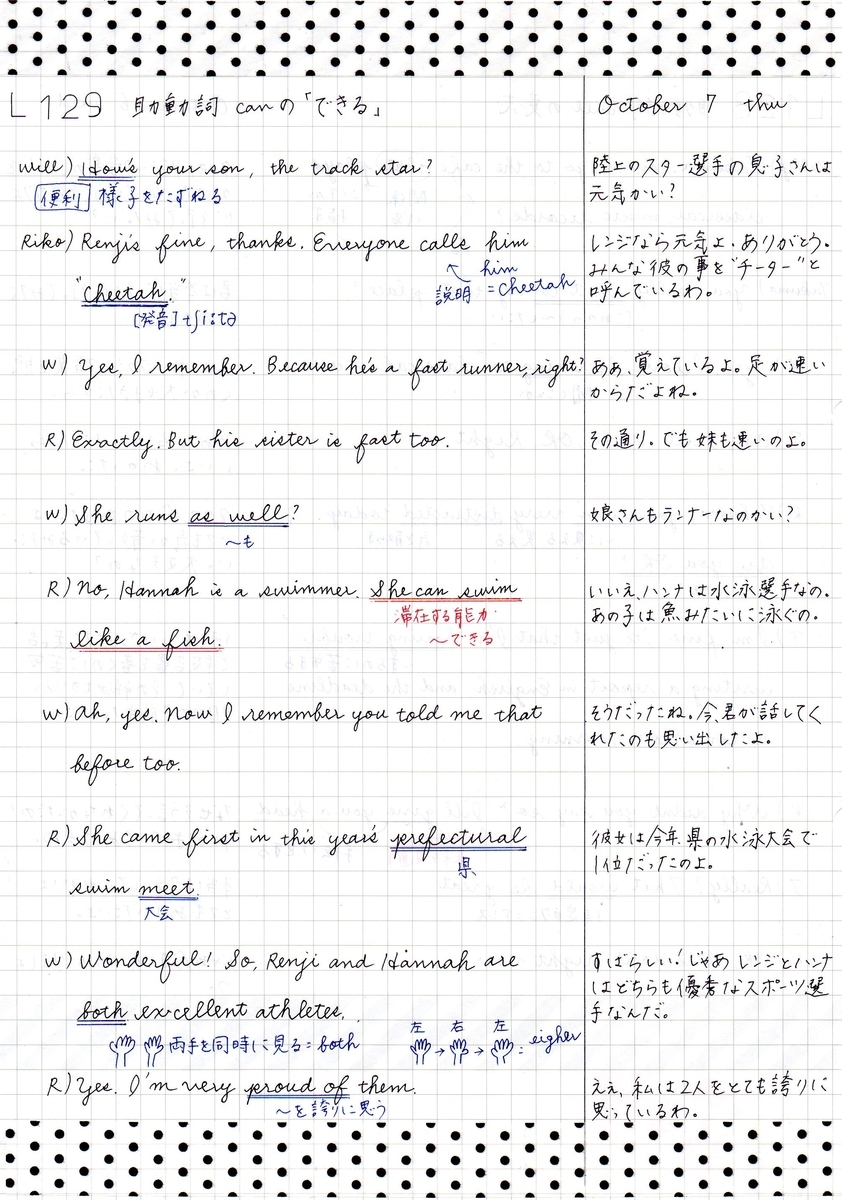 L129 助動詞 canの「できる」
October 7 thu
Will) How's your son, the track star?
便利 様子をたずねる
陸上のスター選手の息子さんは
元気かい?
Riko) Renji's fine, thanks. Everyone calls him
"Cheetah."
[発音] tʃíːtə
↖ him
説明 = Cheetah
レンジなら元気よ、ありがとう。
みんな彼の事を"チーター"と
呼んでいるわ。
W) Yes, I remember. Because he's a fast runner, right?
ああ、覚えているよ。足が速い
からだよね。
R) Exactly. But his sister is fast too.
その通り。でも妹も速いのよ。
W) She runs as well?
〜も
娘さんもランナーなのかい?
R) No, Hannah is a swimmer. She can swim
滞在する能力
like a fish.
〜できる
いいえ、ハンナは水泳選手なの。
あの子は魚みたいに泳ぐの。
W) Ah, yes. Now I remember you told me that
before too.
そうだったね。今、君が話してく
れたのも思い出したよ。
R) She came first in this year's prefectural
県
swim meet.
大会
彼女は今年、県の水泳大会で
1位だったのよ。
W) Wonderful! So, Renji and Hannah are
both excellent athletes.
両手を同時に見る=both
左 → 右 → 左 = eigher
すばらしい!じゃあレンジとハンナ
はどちらも優秀なスポーツ選
手なんだ。
R) Yes. I'm very proud of them.
〜を誇りに思う
ええ、私は2人をとても誇りに
思っているわ。